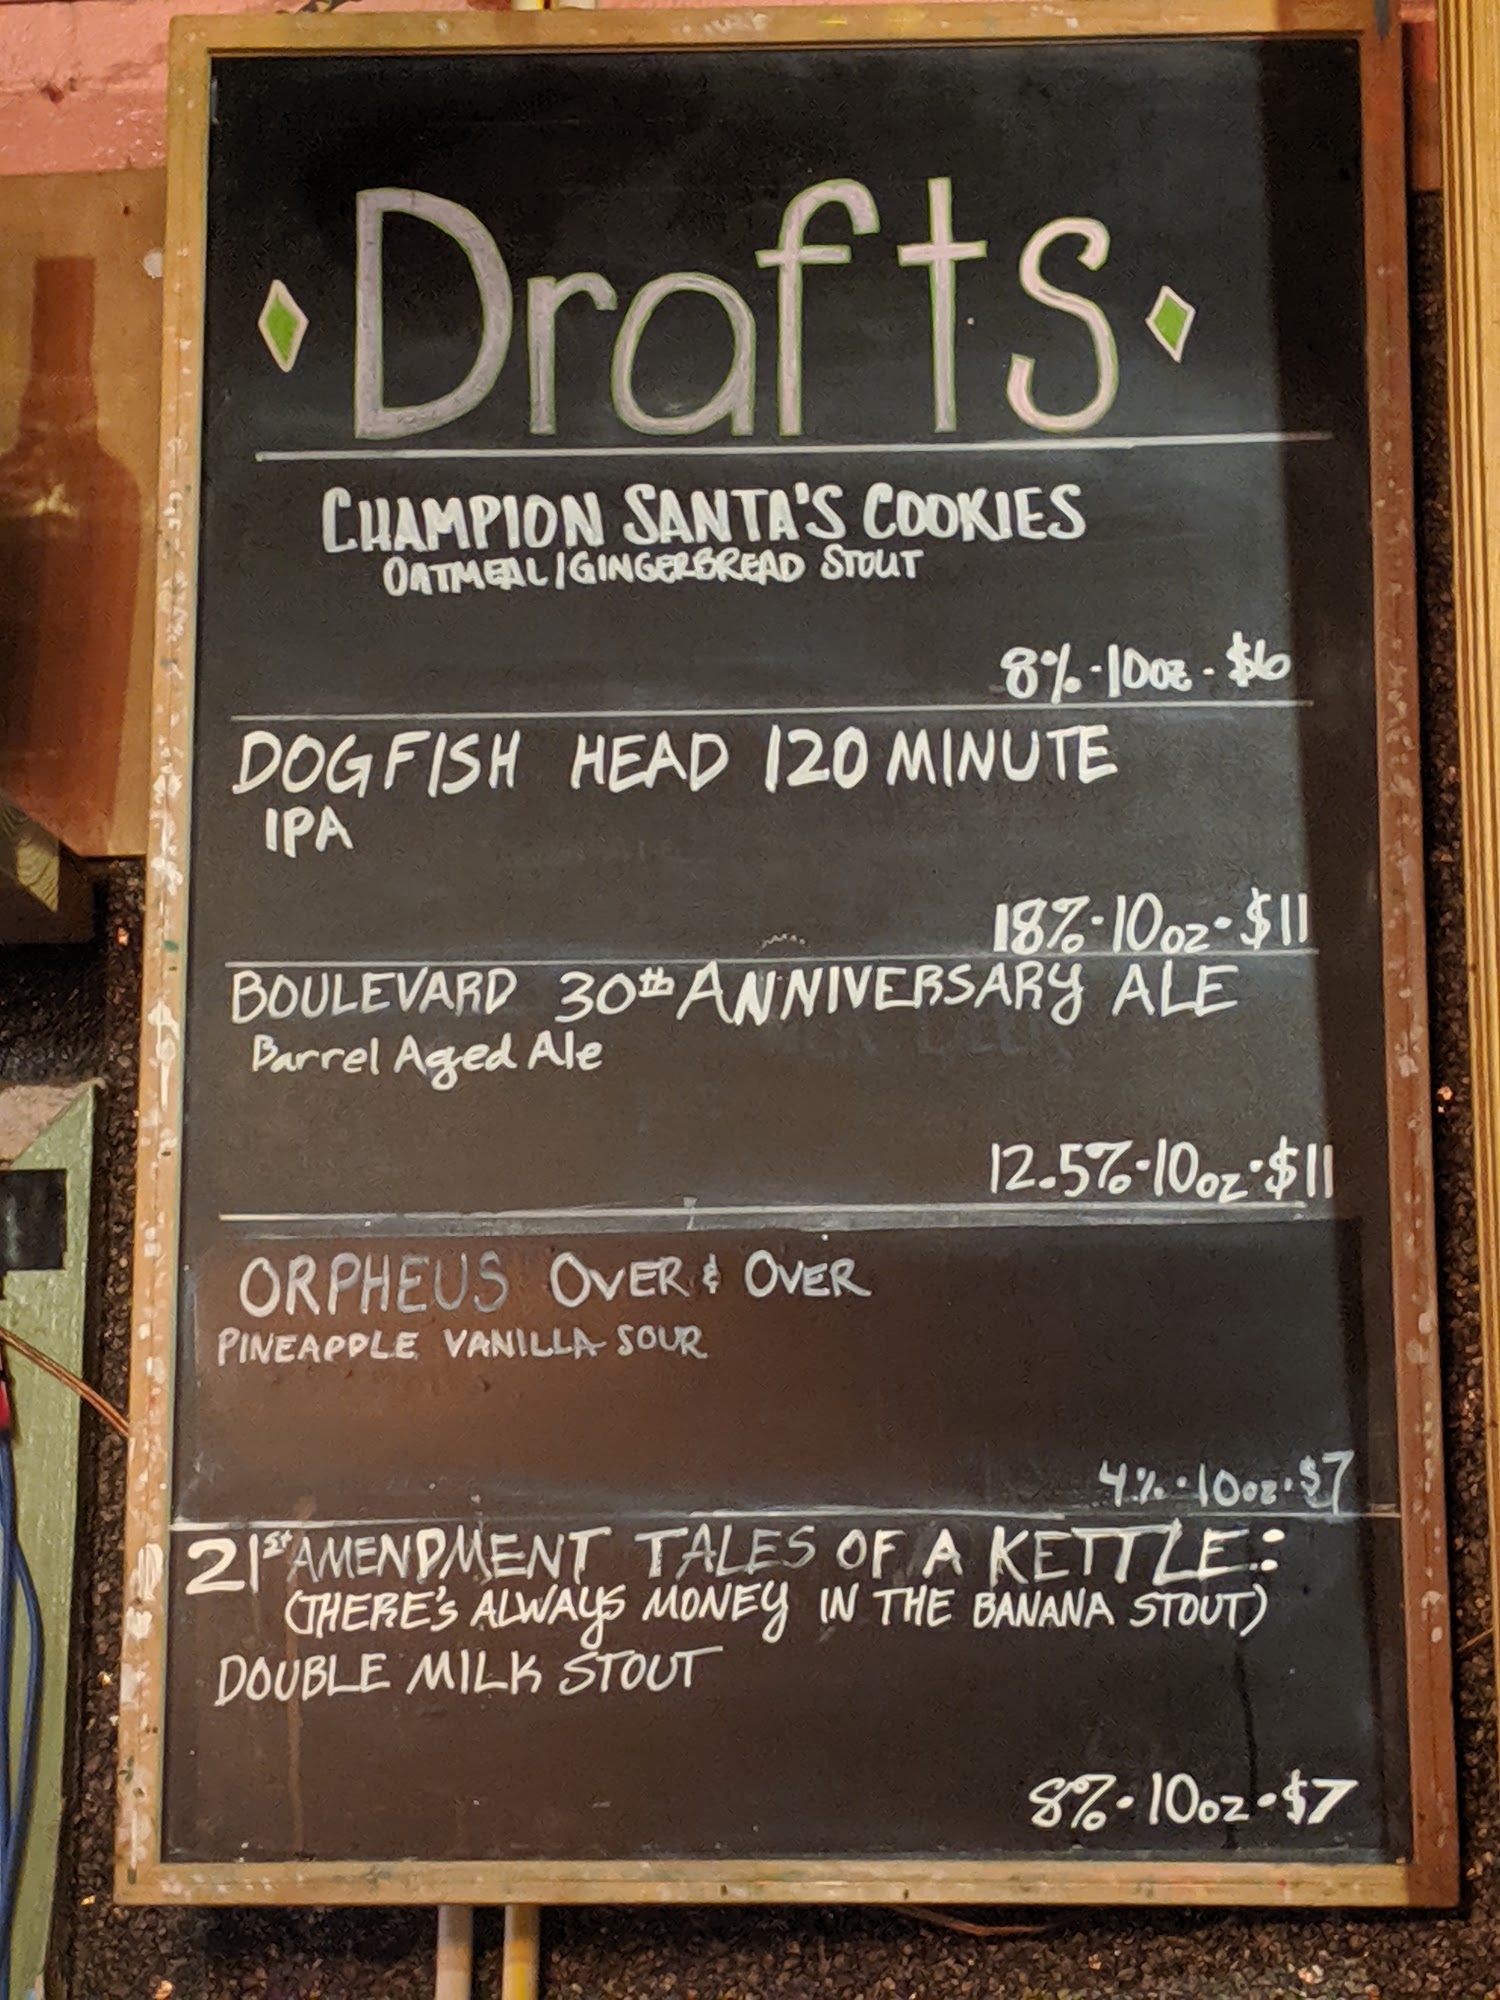 Drafts
CHAMPION SANTA'S COOKIES
OATMEAL/GINGERBREAD STOUT
8%·10oz·$6
DOGFISH HEAD 120 MINUTE
IPA
18%·10oz·$11
BOULEVARD 30th ANNIVERSARY ALE
Barrel Aged Ale
12.5%·10oz·$11
ORPHEUS OVER & OVER
PINEAPPLE VANILLA SOUR
4%·10oz·$7
21st AMENDMENT TALES OF A KETTLE:
(THERE'S ALWAYS MONEY IN THE BANANA STOUT)
DOUBLE MILK STOUT
8%·10oz·$7